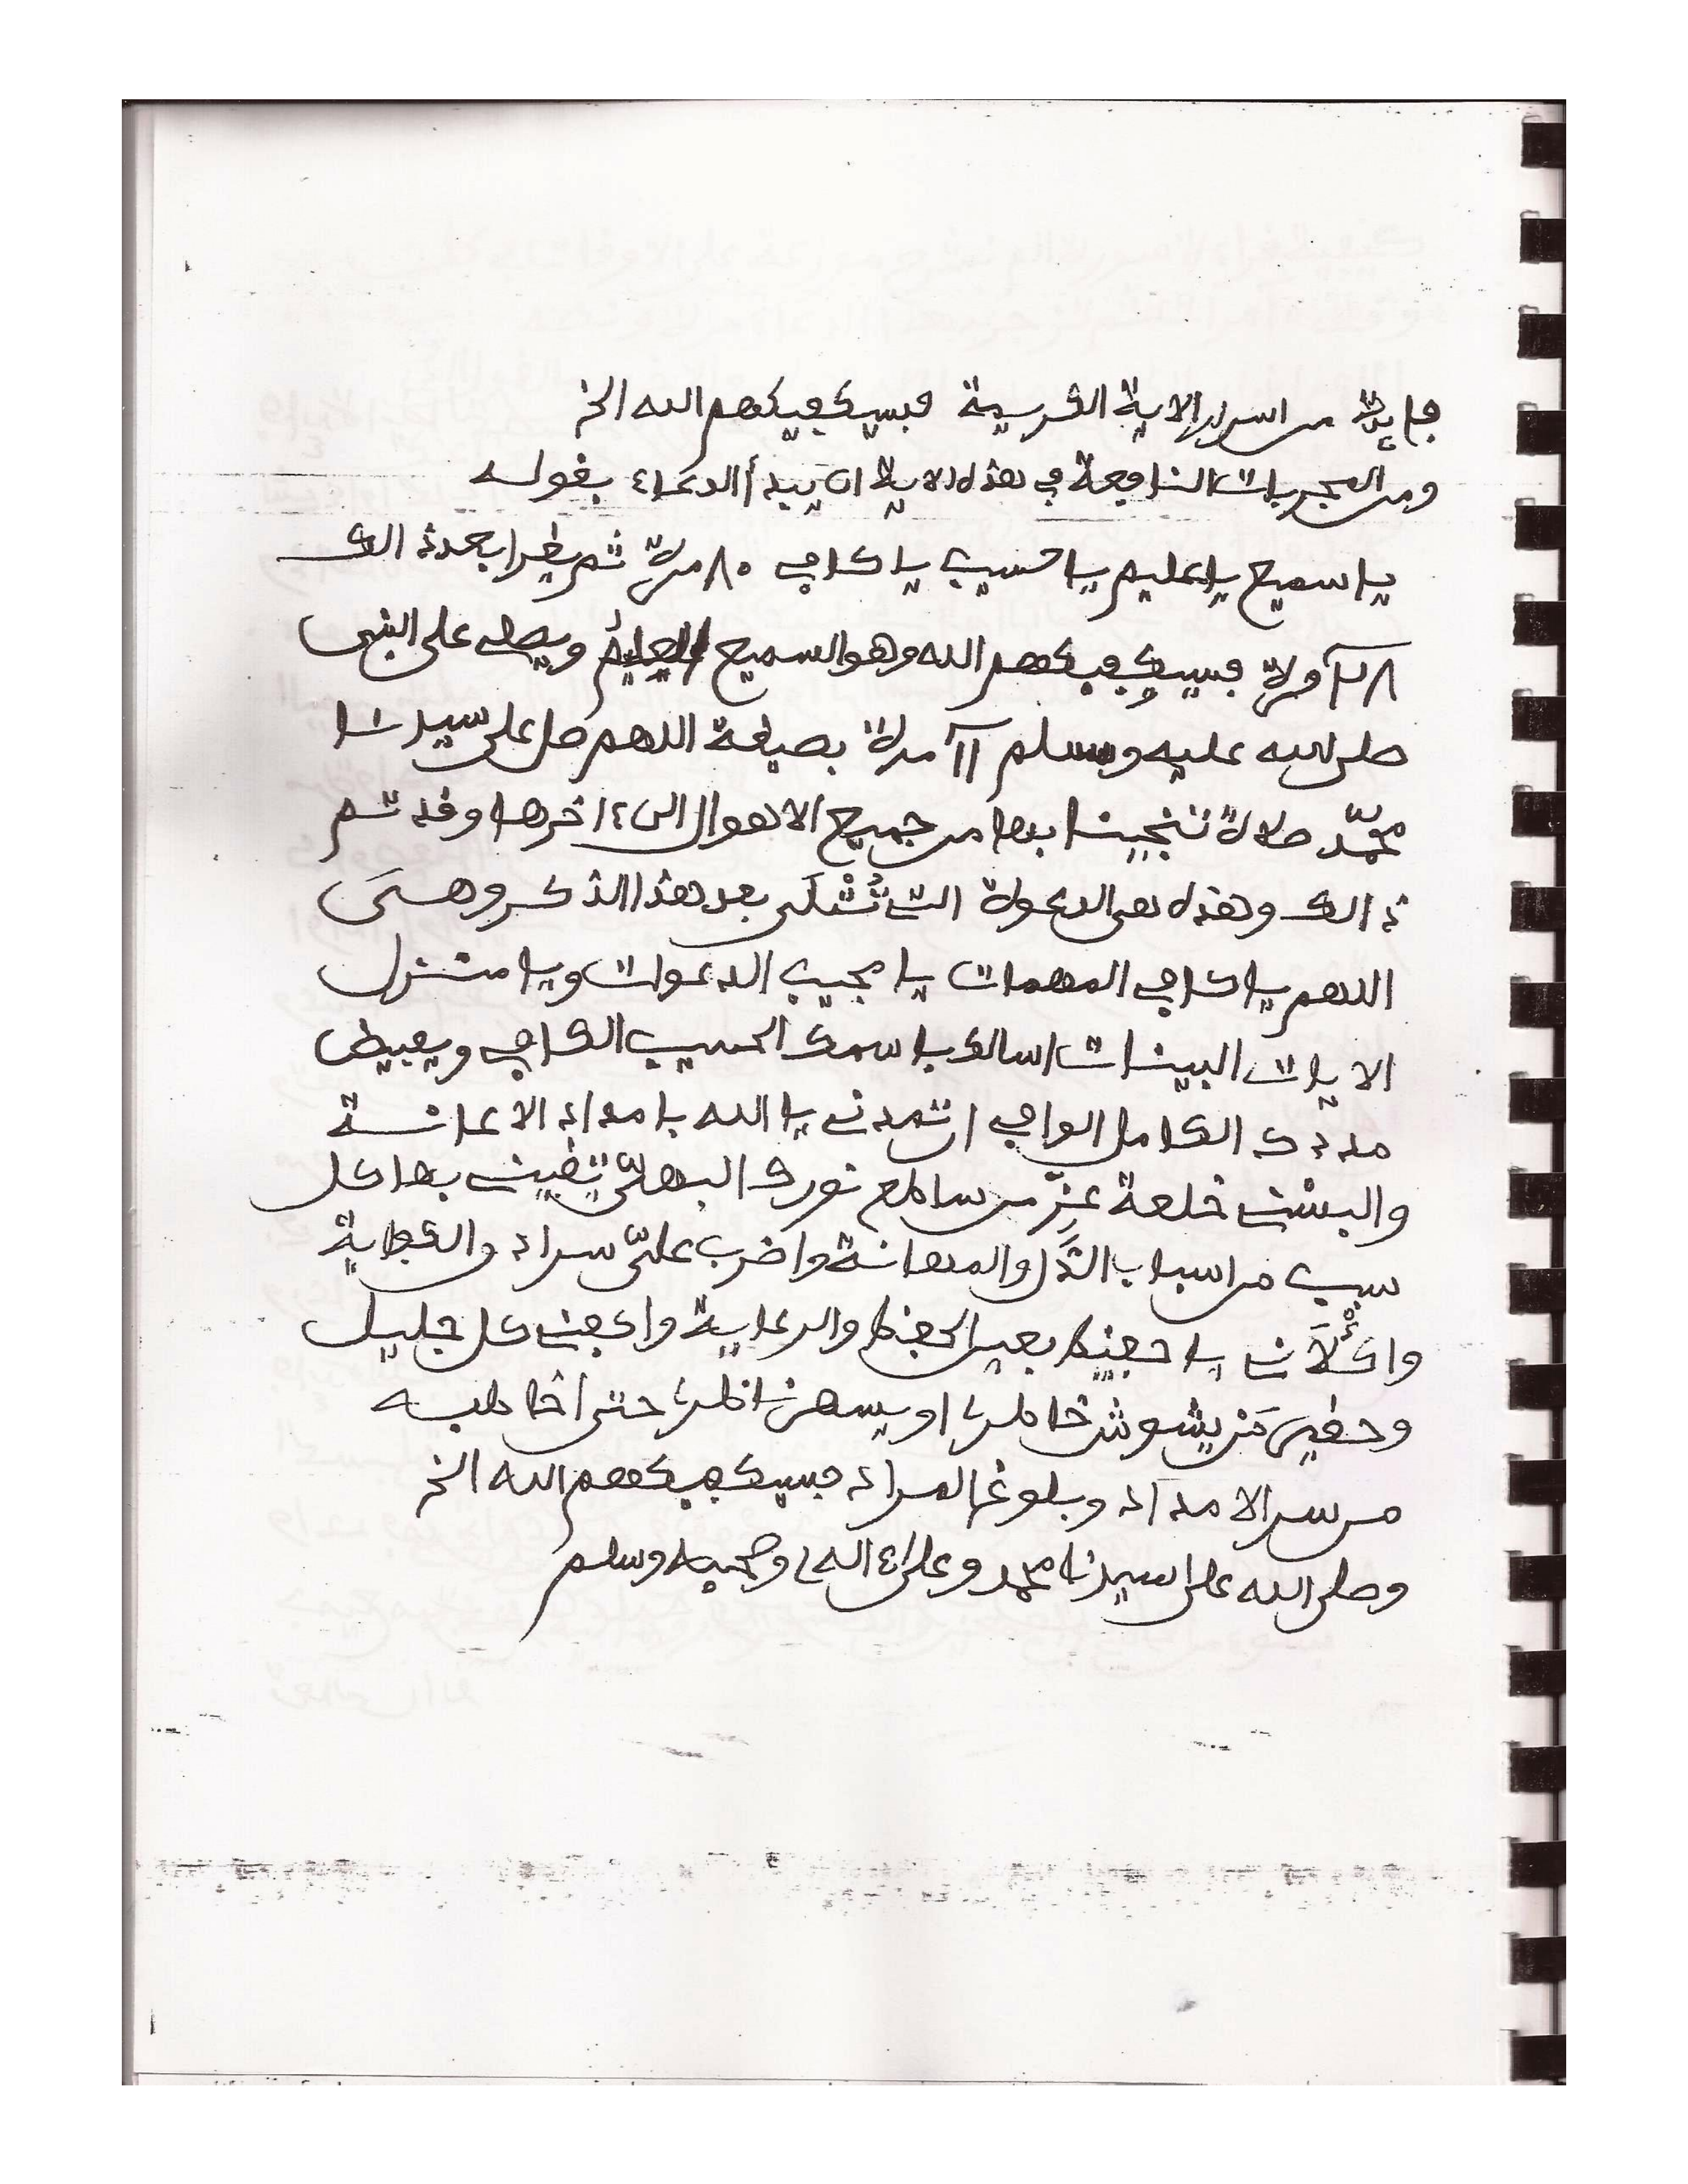 فايدة من اسرار الاية الشريفة فسيكفيكهم الله الخ
ومن المجربات النافعة في هذه الاية ان يبدأ الدعاء بقوله
يا سميع يا عليم يا حسيب يا كافي ٨٠ مرة ثم يقرا بعد ذالك
مرة فسيكفيكهم الله وهو السميع العليم ويصلي على النبي
صلى الله عليه وسلم ١١ مرة بصيغة اللهم صل على سيدنا
محمّد صلاة تنجينا بها من جميع الاهوال الى ءاخرها وقد تم
ذالك وهذه هى الدعوة التي تُتْلَى بعد هذا الذكر وهىَ
اللهم يا كافي المهمات يا مجيب الدعوات ويا منزل
الايات البينات اسالك باسمك الحسيب الكافي وبفيض
مددك الكامل الوافي ان تمدني يا الله بامداد الاعانة
والبسْني خلعة عزّ من ساطع نورك البهىّ تقيني بها كل
سبب من اسباب الذَل والمهانة واضرب علىّ سراد والوقاية
واكْلَأْني يا حفيظ بعين الحفظ والرعاية واكفني كل جليل
وحقير مَنْ يشوش خاطري او يسهر ناظري حتى أخاطبه
من سر الامداد وبلوغ المراد فسيكفيكهم الله الخ
وصلى الله على سيدنا محمد وعلى ءاله وصحبه وسلم